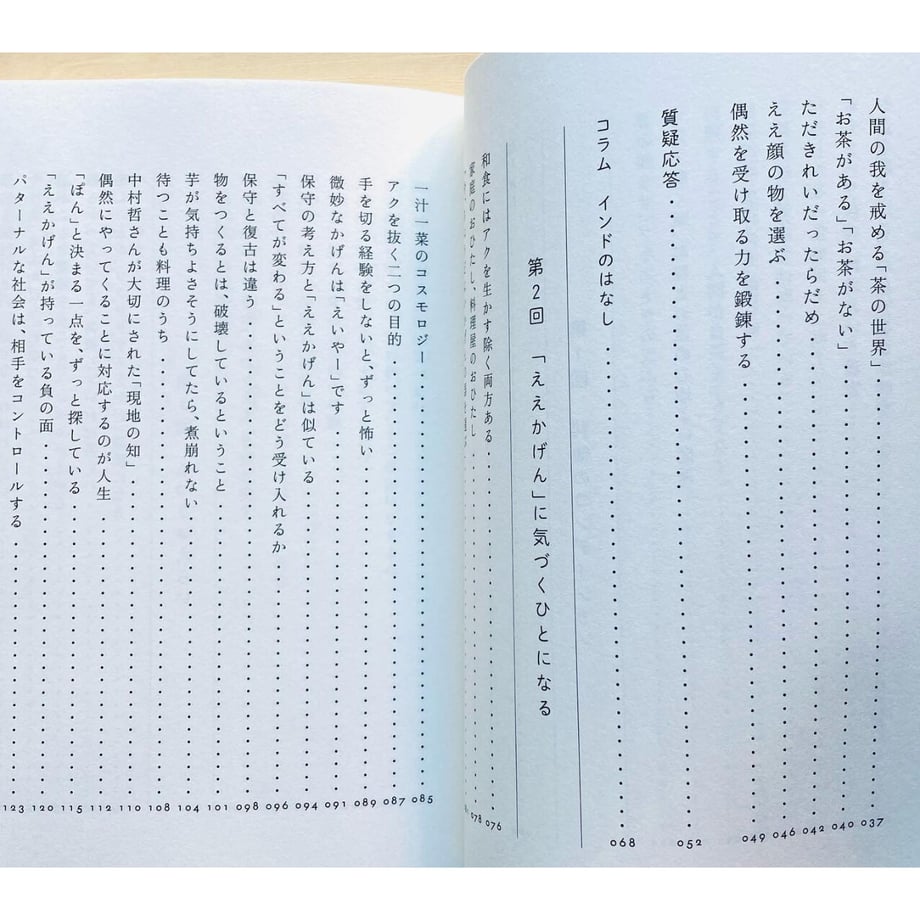 人間の我を戒める「茶の世界」 037
「お茶がある」「お茶がない」 040
ただきれいだったらだめ 042
ええ顔の物を選ぶ 046
偶然を受け取る力を鍛錬する 049
質疑応答 052
コラム インドのはなし 068
第2回 「ええかげん」に気づくひとになる
和食にはアクを生かす除く両方ある 076
家庭のおひたし、料理屋のおひたし 078
一汁一菜のコスモロジー 085
アクを抜く二つの目的 087
手を切る経験をしないと、ずっと怖い 089
微妙なかげんは「えいやー」です 091
保守の考え方と「ええかげん」は似ている 094
「すべてが変わる」ということをどう受け入れるか 096
保守と復古は違う 098
物をつくるとは、破壊しているということ 101
芋が気持ちよさそうにしてたら、煮崩れない 104
待つことも料理のうち 108
中村哲さんが大切にされた「現地の知」 110
偶然にやってくることに対応するのが人生 112
「ぽん」と決まる一点を、ずっと探している 115
「ええかげん」が持っている負の面 120
パターナルな社会は、相手をコントロールする 123